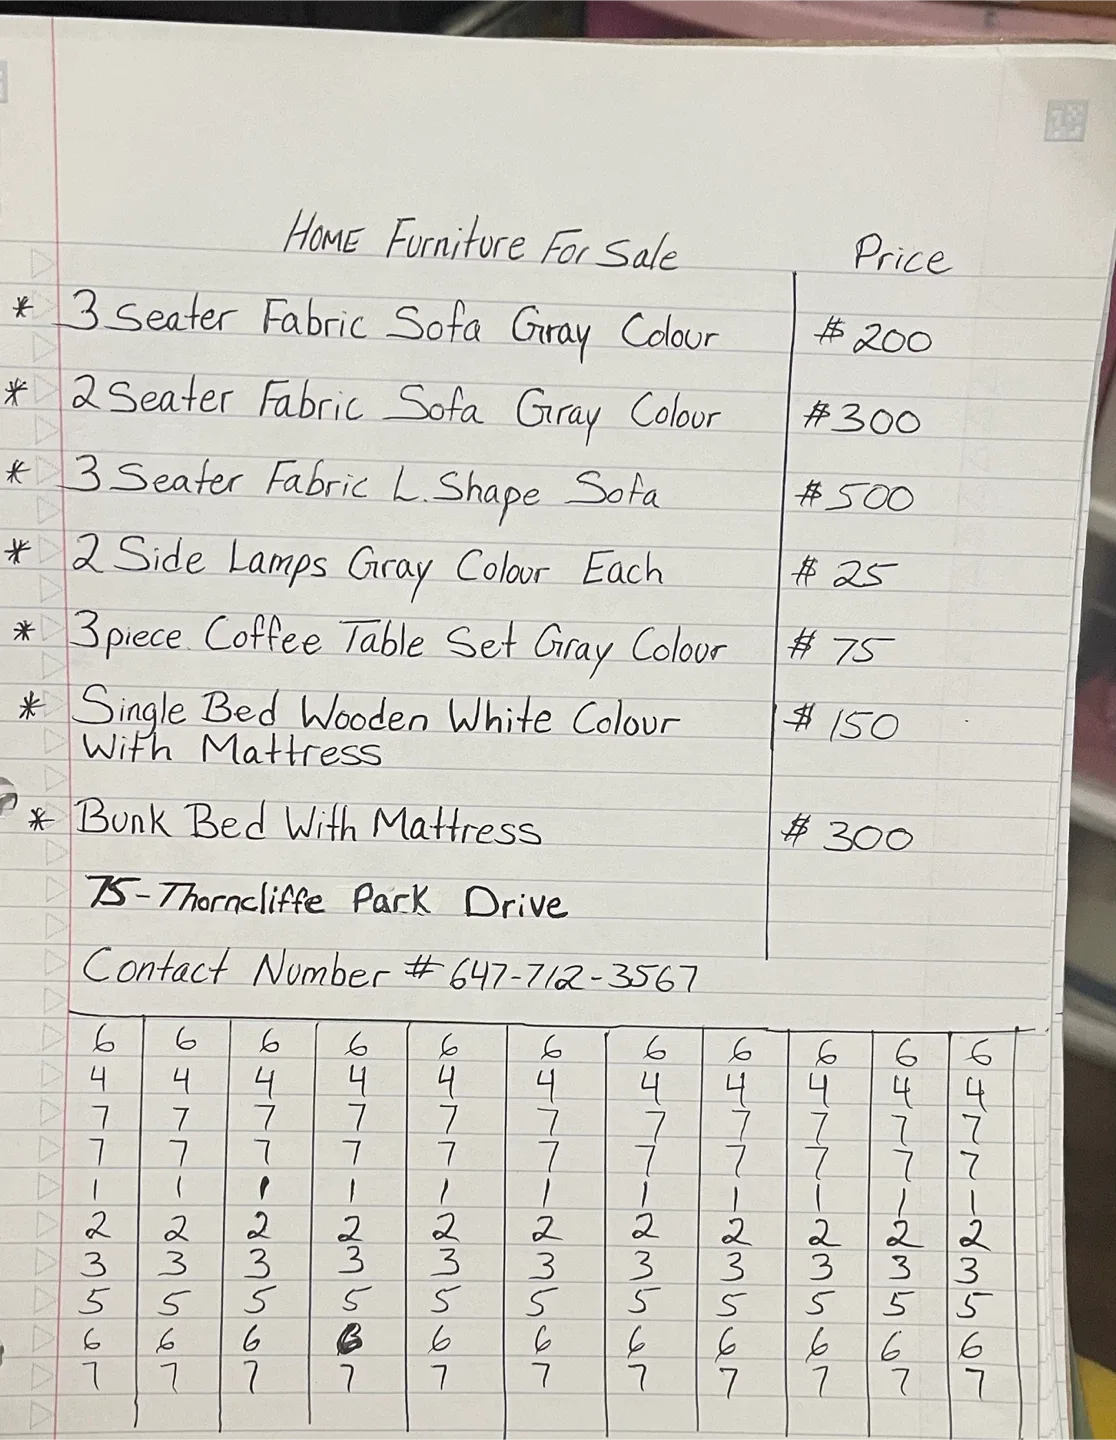 HOME Furniture For Sale Price
* 3 Seater Fabric Sofa Gray Colour $200
* 2 Seater Fabric Sofa Gray Colour $300
* 3 Seater Fabric L.Shape Sofa $500
* 2 Side Lamps Gray Colour Each $25
* 3piece Coffee Table Set Gray Colour $75
* Single Bed Wooden White Colour $150
With Mattress
* Bunk Bed With Mattress $300
75-Thorncliffe Park Drive
Contact Number # 647-712-3567
6 6 6 6 6 6 6 6 6 6 6
4 4 4 4 4 4 4 4 4 4 4
7 7 7 7 7 7 7 7 7 7 7
7 7 7 7 7 7 7 7 7 7 7
1 1 1 1 1 1 1 1 1 1 1
2 2 2 2 2 2 2 2 2 2 2
3 3 3 3 3 3 3 3 3 3 3
5 5 5 5 5 5 5 5 5 5 5
6 6 6 6 6 6 6 6 6 6 6
7 7 7 7 7 7 7 7 7 7 7